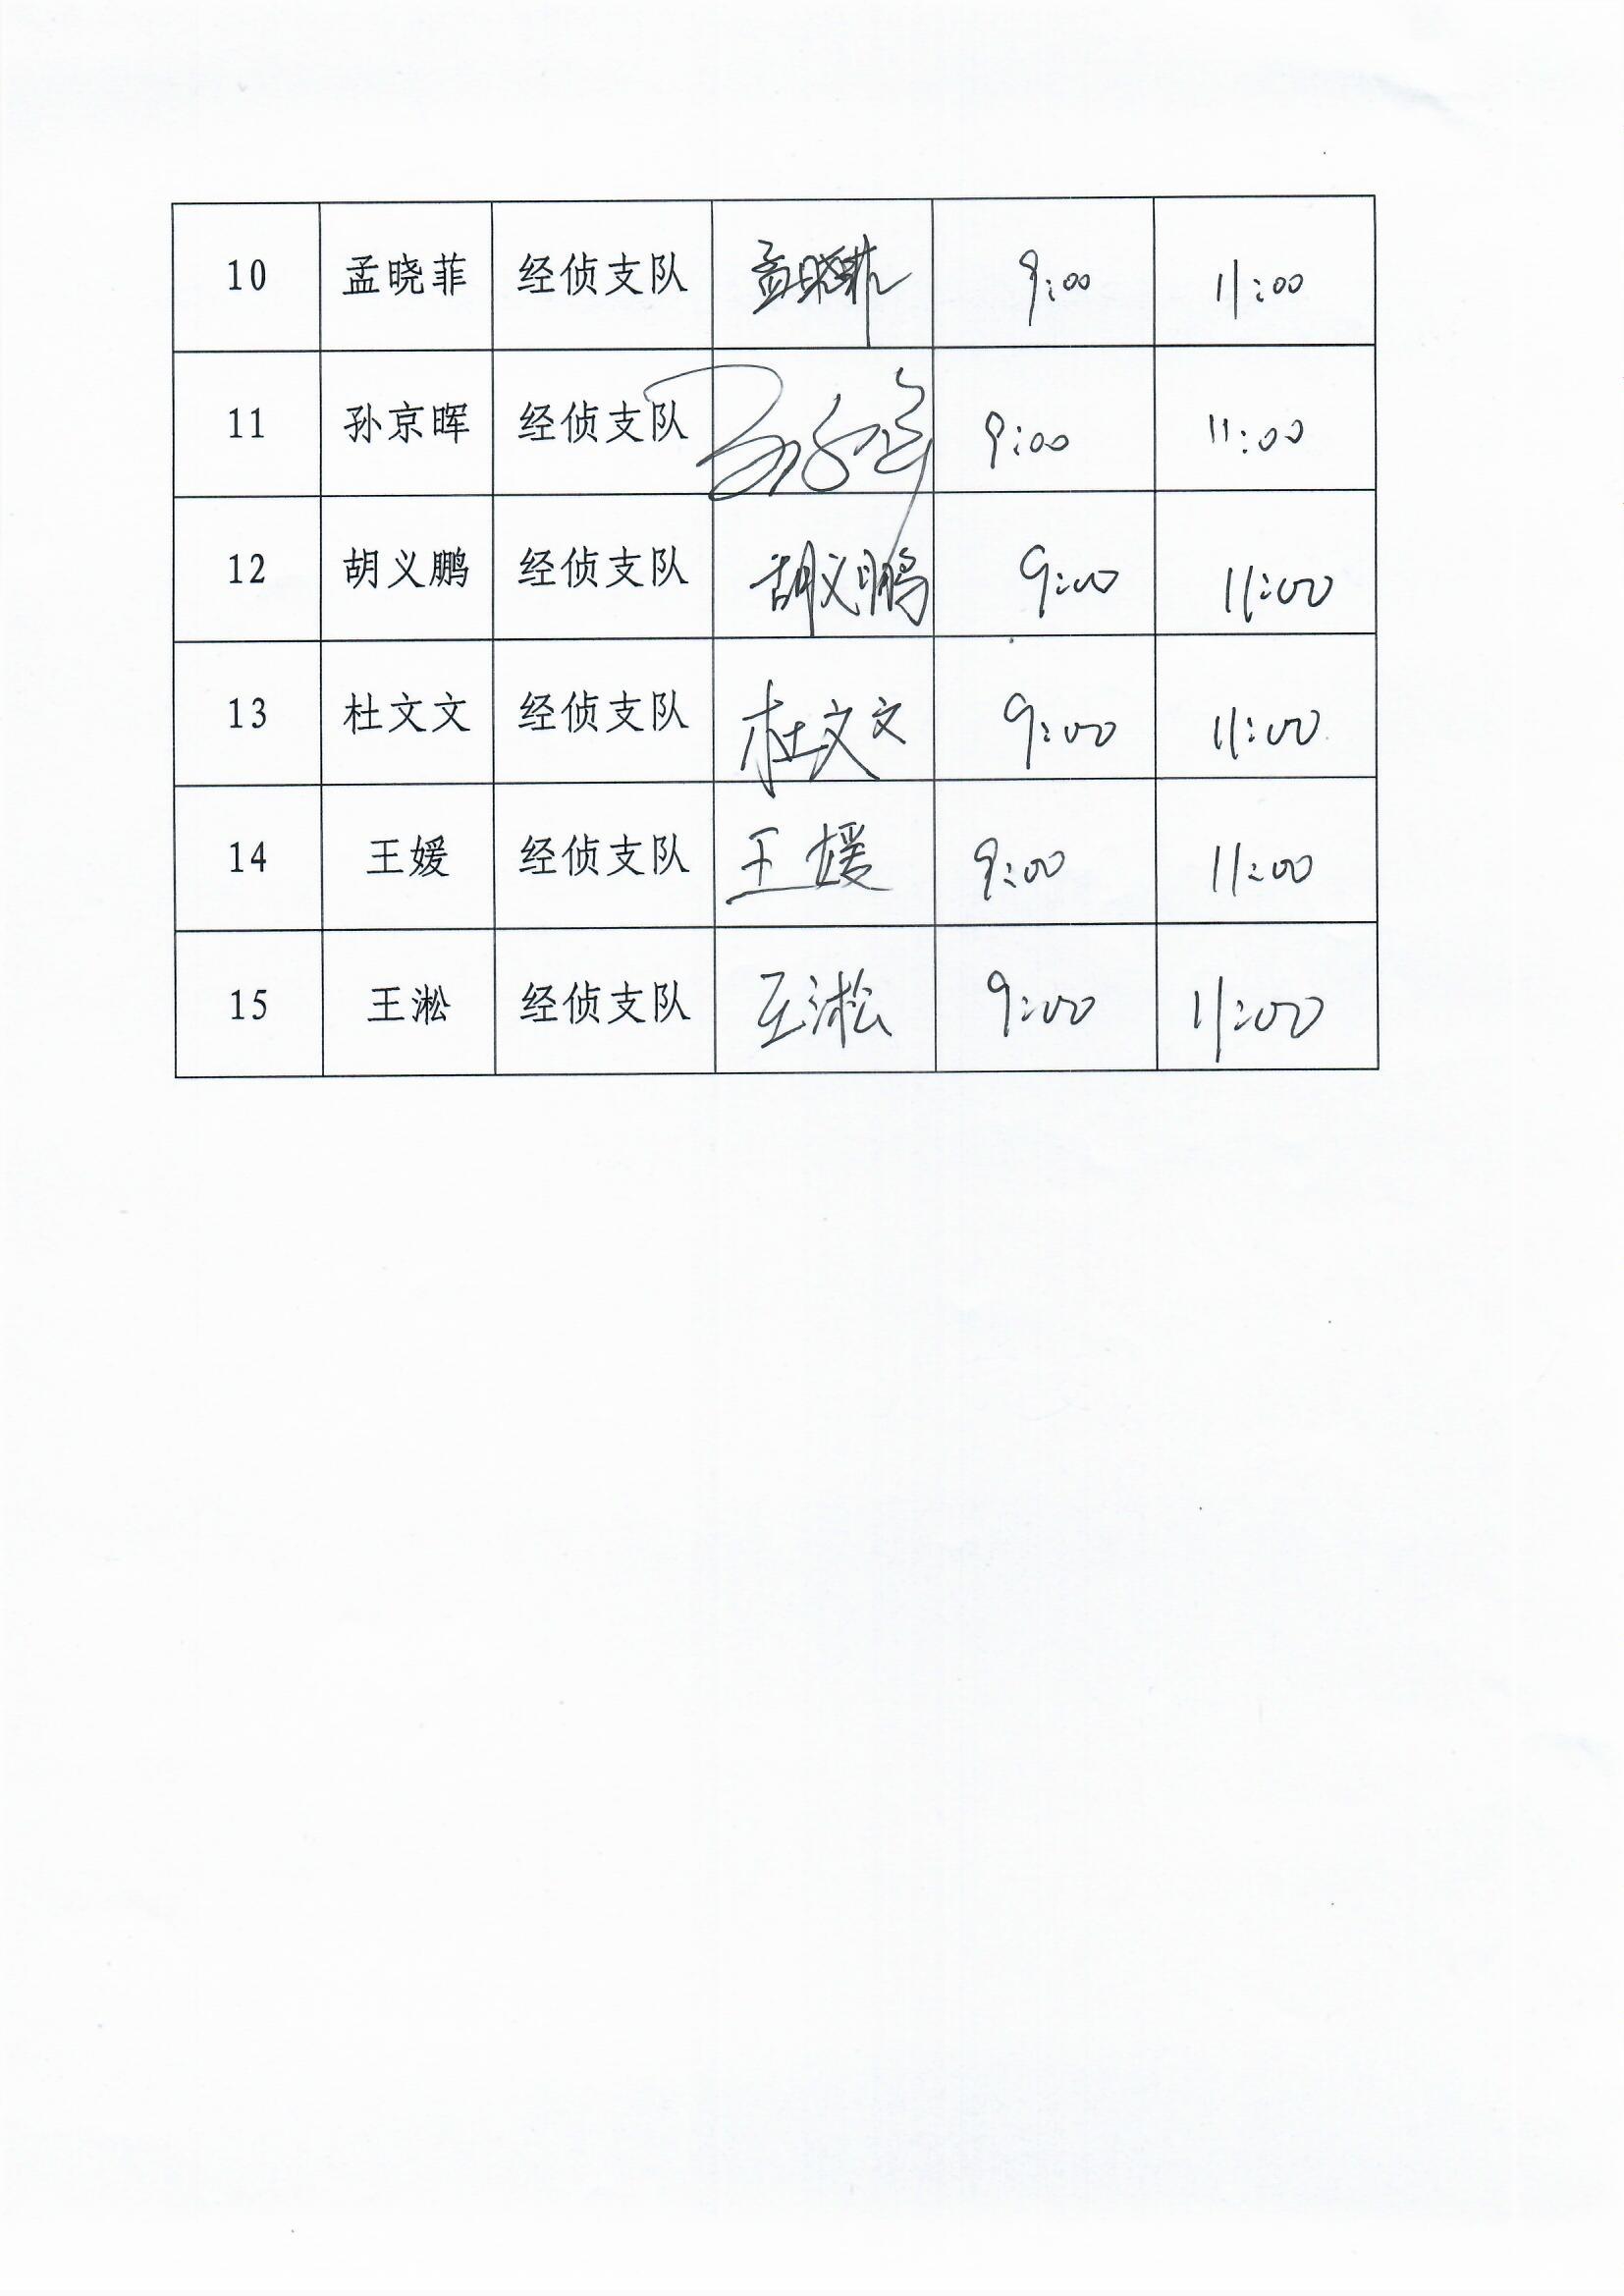 10 孟晓菲 经侦支队 孟晓菲 9:00 11:00
11 孙京晖 经侦支队 孙京晖 9:00 11:00
12 胡义鹏 经侦支队 胡义鹏 9:00 11:00
13 杜文文 经侦支队 杜文文 9:00 11:00
14 王媛 经侦支队 王媛 9:00 11:00
15 王淞 经侦支队 王淞 9:00 11:00